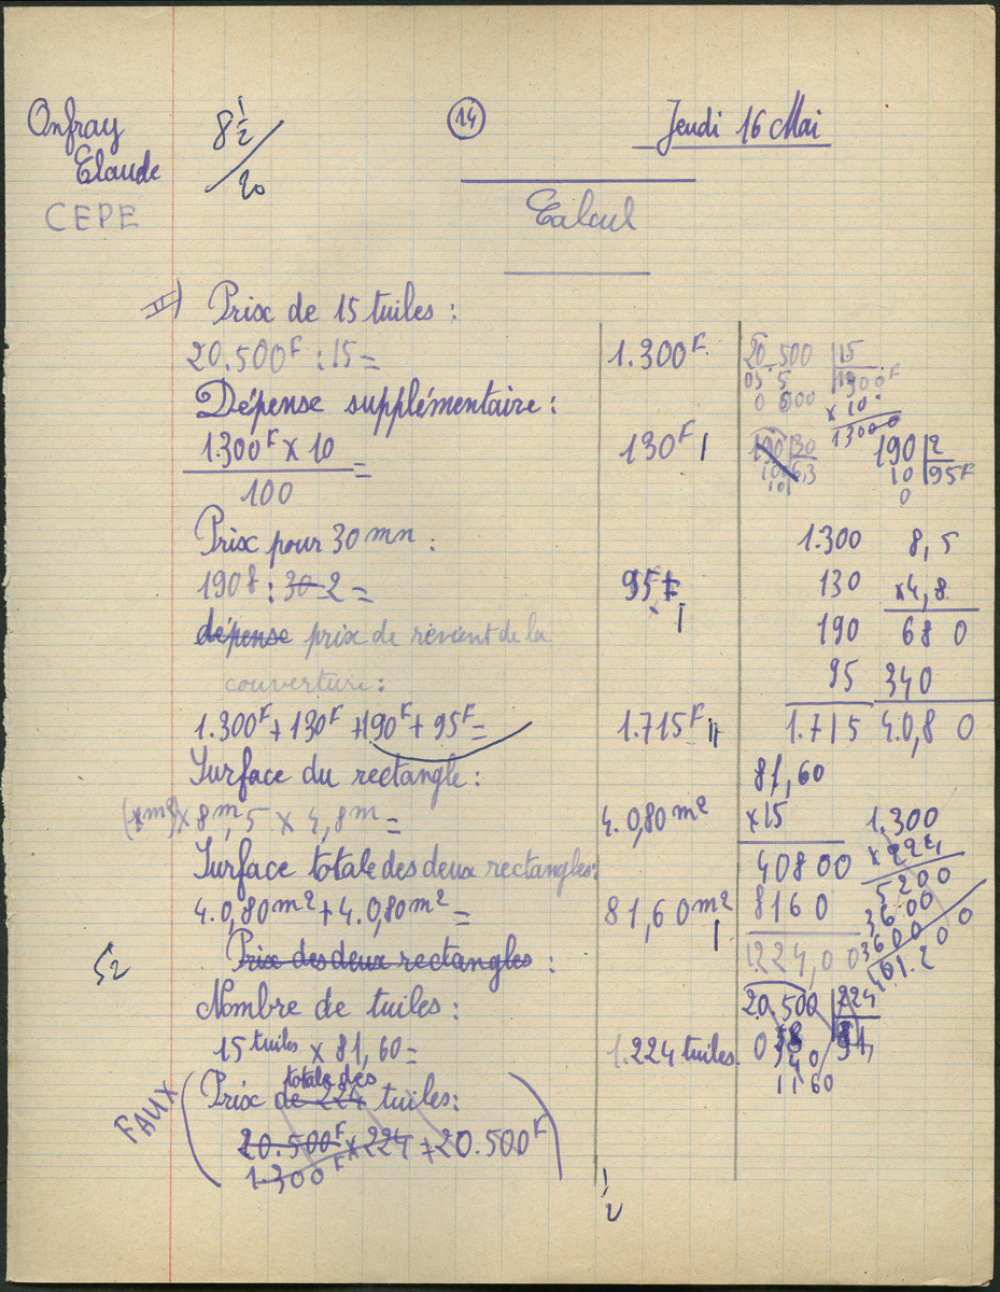 Onfray
Claude
CEPE
8 1/2
/20
14
Jeudi 16 Mai
Calcul
II) Prix de 15 tuiles :
20.500F : 15 =
1.300F
Dépense supplémentaire :
1.300F x 10
100
=
130F
Prix pour 30 mn :
190f : 30 2 =
95F
dépense prix de revient de la
couverture :
1.300F + 130F + 190F + 95F =
1.715F
Surface du rectangle :
(x m²) x 8m,5 x 4,8m =
4.0,80 m²
Surface totale des deux rectangles :
4.0,80m² + 4.0,80m² =
81,60m²
Prix des deux rectangles :
Nombre de tuiles :
15 tuiles x 81,60 =
1.224 tuiles
FAUX
totale des
Prix de 224 tuiles :
20.500F x 224 = 20.500F
1.300F
1/2
20.500 15
05 5
0 500
x 10
13000
190 30
190 2
10 95F
0
1.300
130
190
95
1.715
8,5
x4,8
68 0
340
4.0,8 0
81,60
x15
40800
8160
1224,00
1.300
x 224
5200
20.500 224
11 60